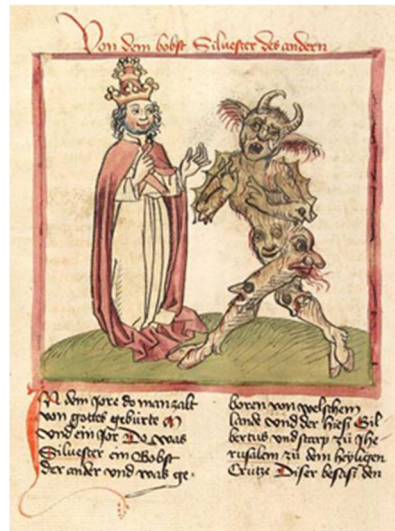 Von dem bobst Siluester des andern
IN dem Jore do man zalt
von gottes gebürte M
Vnd ein Jor Do was
Siluester ein Bobst
der ander vnd was ge-
boren von welschem
lande vnd der hiess Gil
bertus vnd starp zu Jhe
rusalem zu dem heyligen
Crütze Diser besass den